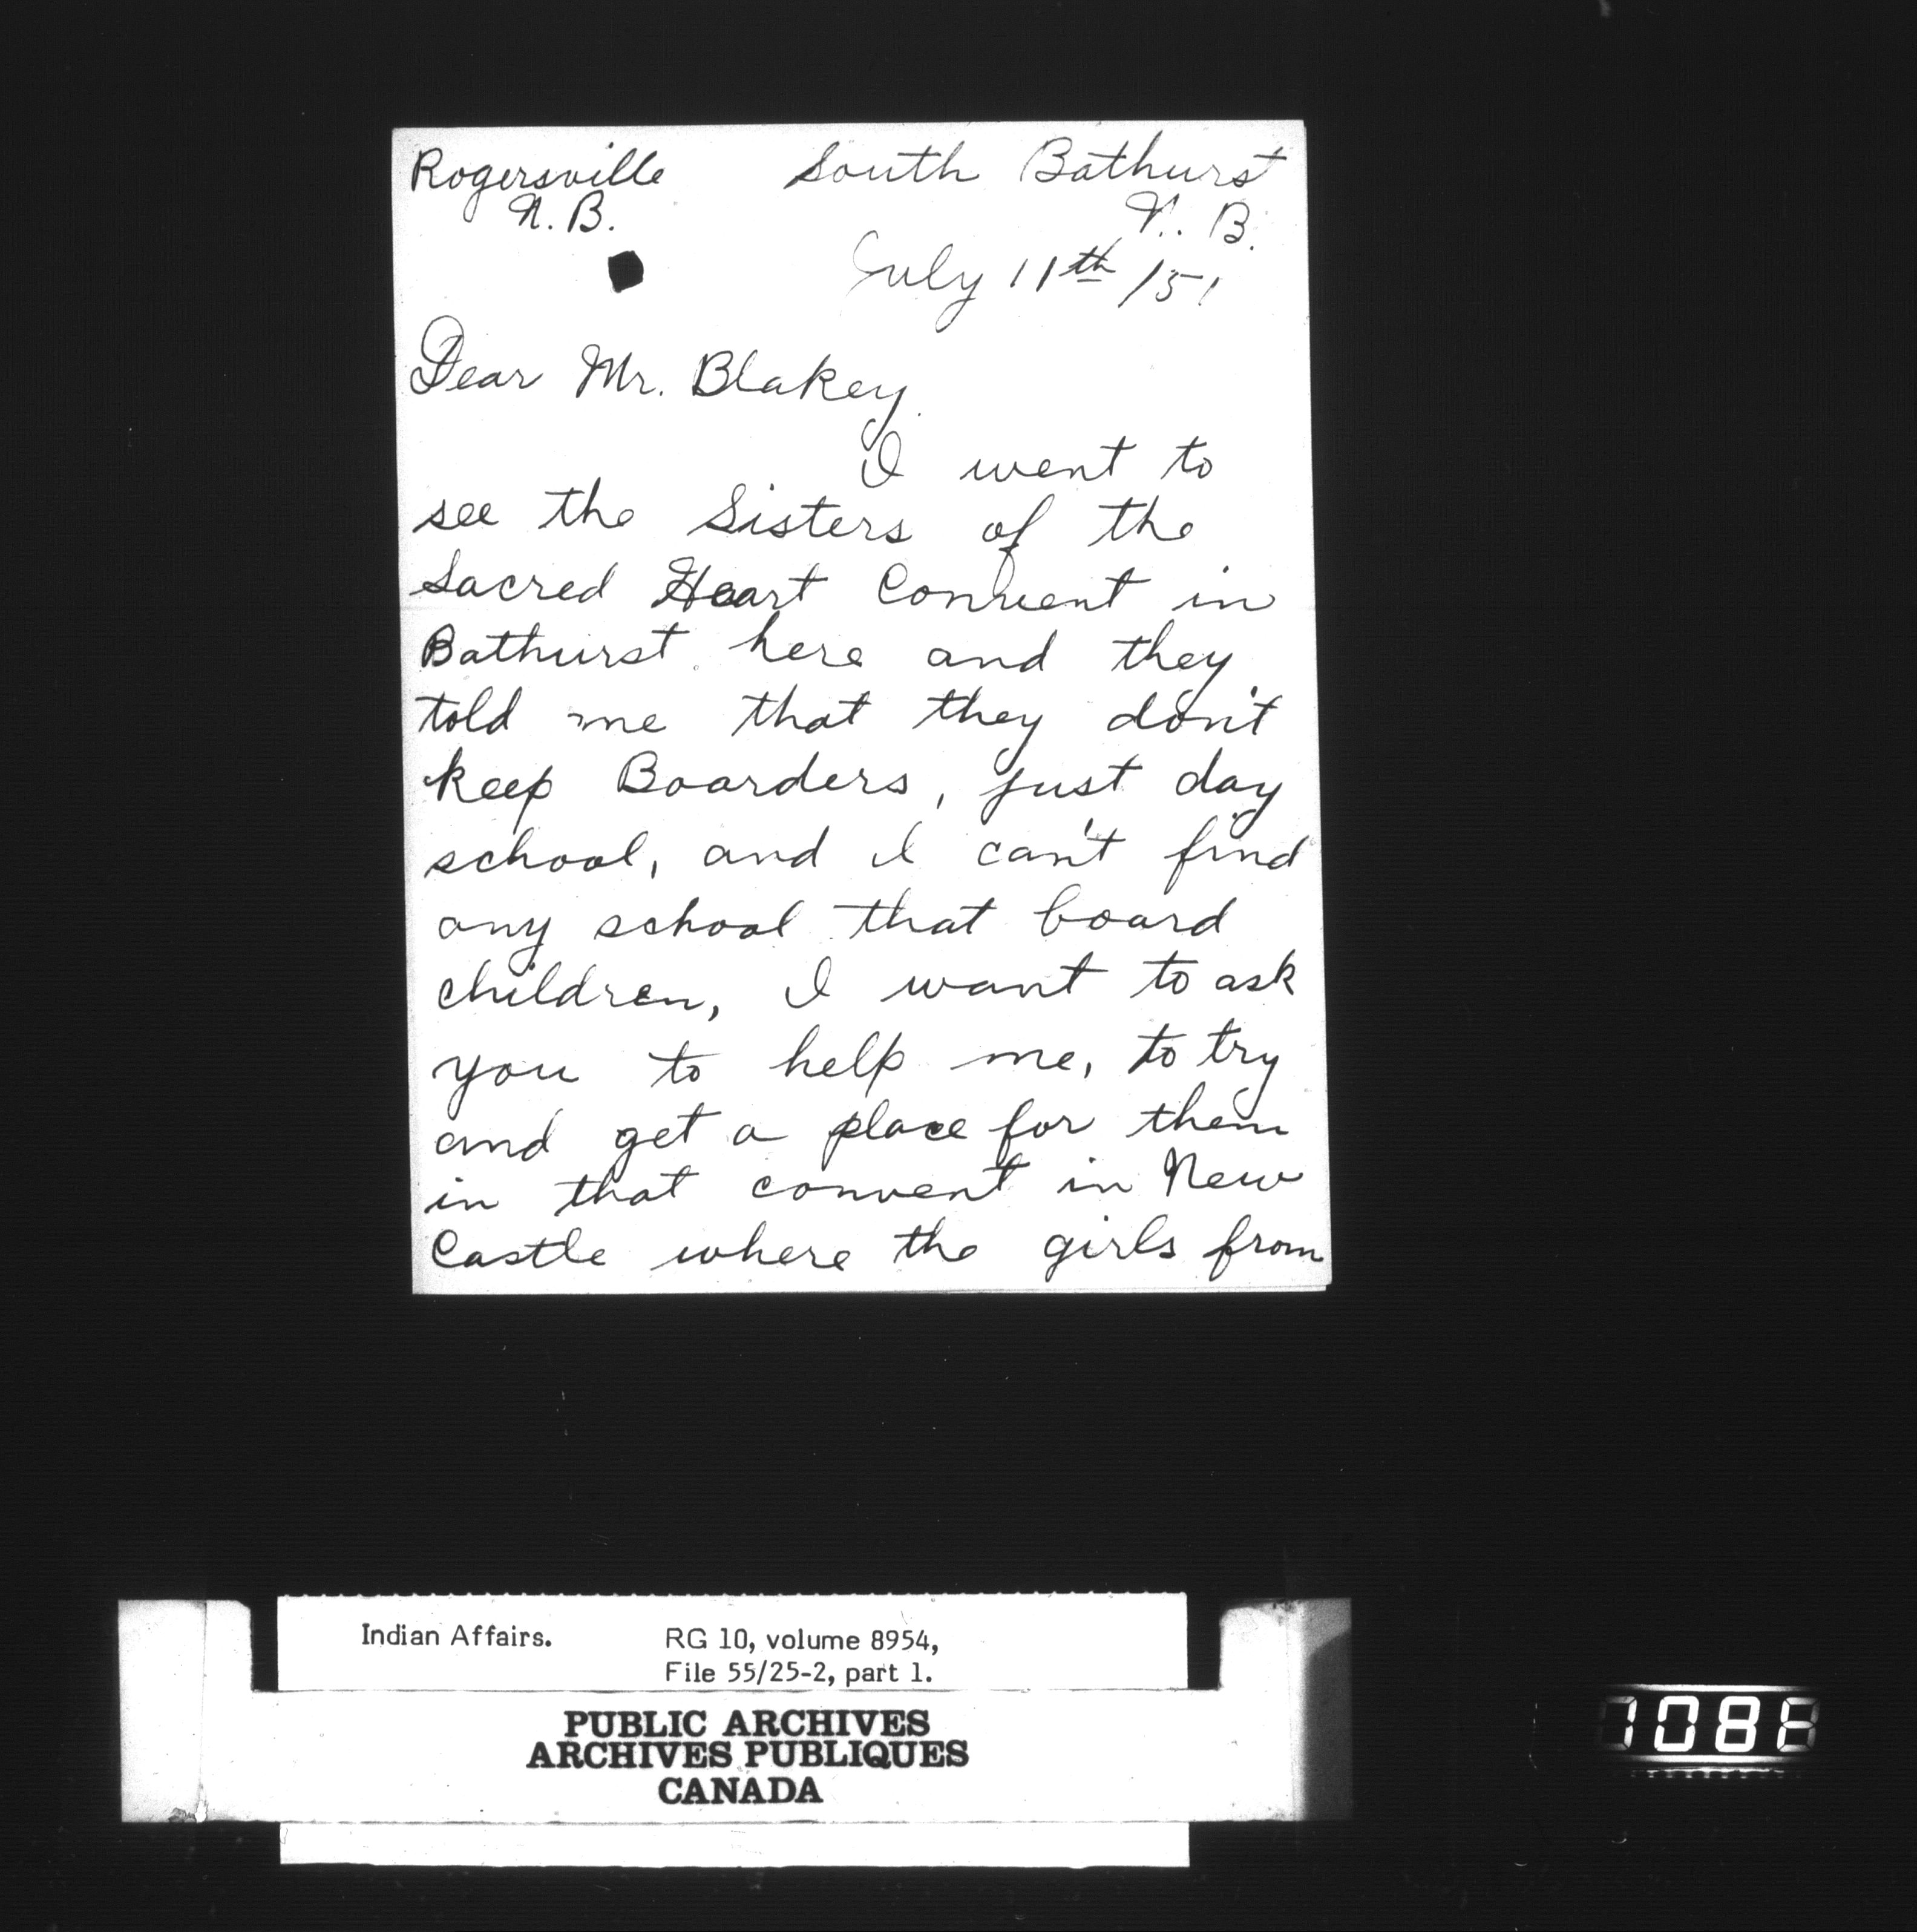 Rogersville South Bathurst
N.B. N.B.
July 11th /51
Dear Mr. Blakey
I went to
see the Sisters of the
Sacred Heart Convent in
Bathurst here and they
told me that they don't
keep Boarders, just day
school, and I can't find
any school that board
children, I want to ask
you to help me, to try
and get a place for them
in that convent in New
Castle where the girls from
Indian Affairs. RG 10, volume 8954,
File 55/25-2, part 1.
PUBLIC ARCHIVES
ARCHIVES PUBLIQUES
CANADA